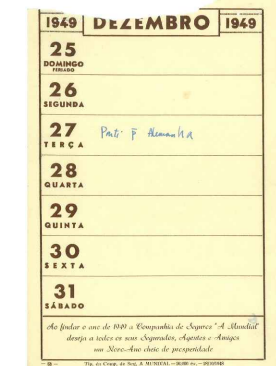 1949 DEZEMBRO 1949
25
DOMINGO
FERIADO
26
SEGUNDA
27 Parti p Alemanha
TERÇA
28
QUARTA
29
QUINTA
30
SEXTA
31
SÁBADO
Ao findar o ano de 1949 a Companhia de Seguros "A Mundial"
deseja a todos os seus Segurados, Agentes e Amigos
um Novo-Ano cheio de prosperidade
Tip. da Comp. de Seg. A MUNDIAL